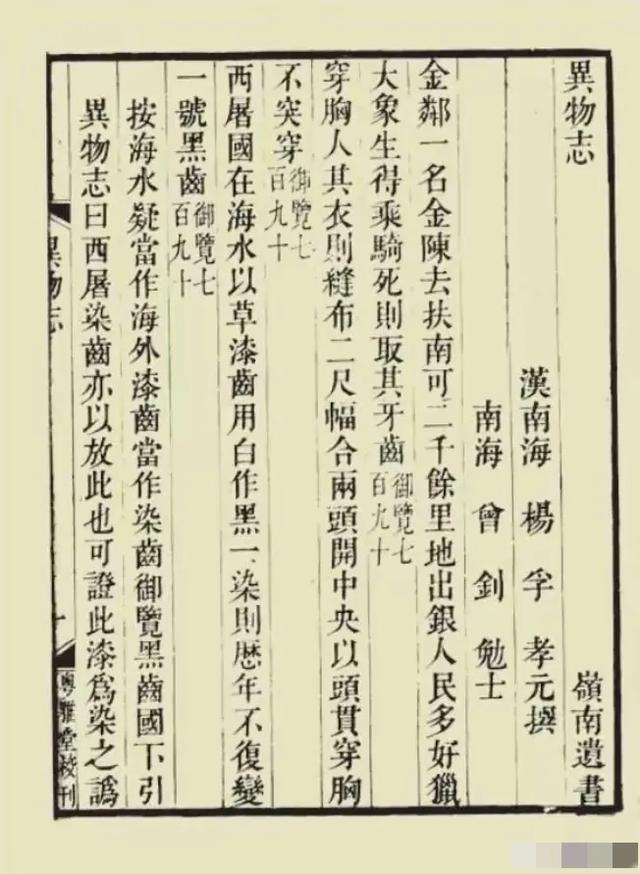 異物志
嶺南遺書
漢南海 楊 孚 孝元撰
南海 曾 釗 勉士
金鄰一名金陳去扶南可二千餘里地出銀人民多好獵
大象生得乘騎死則取其牙齒御覽七百九十
穿胸人其衣則縫布二尺幅合兩頭開中央以頭貫穿胸
不突穿御覽七百九十
西屠國在海水以草漆齒用白作黑一染則歷年不復變
一號黑齒御覽七百九十
按海水疑當作海外漆齒當作染齒御覽黑齒國下引
異物志曰西屠染齒亦以放此也可證此漆爲染之譌
異物志
一
粤雅堂校刊